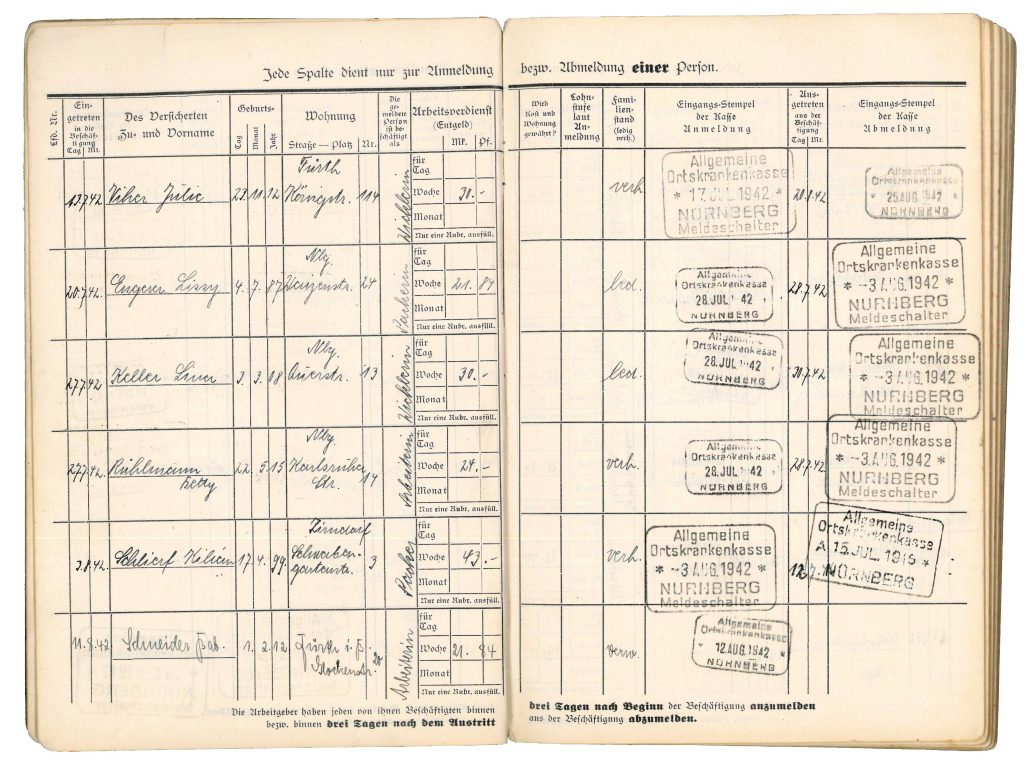 Jede Spalte dient nur zur Anmeldung bezw. Abmeldung einer Person.
Lfd. Nr.
Ein-
getreten
in die
Beschäf-
tigung
Tag Mt.
Des Versicherten
Zu- und Vorname
Geburts-
Tag Monat Jahr
Wohnung
Straße — Platz Nr.
Die ge-
meldete
Person
ist be-
schäftigt
als
Arbeitsverdienst
(Entgeld)
Mk. Pf.
Wird
Kost und
Wohnung
gewährt?
Lohn-
stufe
laut
An-
meldung
Fami-
lien-
stand
(ledig
verh.)
Eingangs-Stempel
der Kasse
Anmeldung
Aus-
getreten
aus der
Beschäf-
tigung
Tag Mt.
Eingangs-Stempel
der Kasse
Abmeldung
Fürth
13.7.42 Julie 23.11.12 Königstr. 114 Wicklerin
für
Tag
Woche 30.-
Monat
Nur eine Rubr. ausfüll.
verh.
Allgemeine
Ortskrankenkasse
* 17. JUL 1942 *
NÜRNBERG
Meldeschalter
20.8.42
Allgemeine
Ortskrankenkasse
* 25. AUG. 1942 *
NÜRNBERG
Nbg.
20.7.42. Engerer Lissy 4. 7. 07 24 Packerin
für
Tag
Woche 21. 84
Monat
Nur eine Rubr. ausfüll.
led.
Allgemeine
Ortskrankenkasse
28. JUL 1942
NÜRNBERG
28.7.42
Allgemeine
Ortskrankenkasse
* -3 AUG. 1942 *
NÜRNBERG
Meldeschalter
Nbg.
27.7.42. Keller Lina 3. 3. 08 Querstr. 13 Wicklerin
für
Tag
Woche 30.-
Monat
Nur eine Rubr. ausfüll.
led.
Allgemeine
Ortskrankenkasse
28. JUL 1942
NÜRNBERG
30.7.42
Allgemeine
Ortskrankenkasse
* -3 AUG. 1942 *
NÜRNBERG
Meldeschalter
Nbg.
27.7.42. Rühlmann 22. 5. 15 Karlsruher Arbeiterin
Betty Str. 14
für
Tag
Woche 24.-
Monat
Nur eine Rubr. ausfüll.
verh.
Allgemeine
Ortskrankenkasse
28. JUL 1942
NÜRNBERG
28.7.42
Allgemeine
Ortskrankenkasse
* -3 AUG. 1942 *
NÜRNBERG
Meldeschalter
Zirndorf
3.8.42. Schlierf Kilian 17. 4. 99. Schwaben- 3 Packer
gartenstr.
für
Tag
Woche 43.-
Monat
Nur eine Rubr. ausfüll.
verh.
Allgemeine
Ortskrankenkasse
* -3 AUG. 1942 *
NÜRNBERG
Meldeschalter
Allgemeine
Ortskrankenkasse
A 15. JUL. 1916 *
NÜRNBERG
11.8.42 Schneider Bab. 1. 2. 12. Fürth i. B. Arbeiterin
20
für
Tag
Woche 21. 84
Monat
Nur eine Rubr. ausfüll.
verw.
Allgemeine
Ortskrankenkasse
* 12. AUG. 1942 *
NÜRNBERG
Die Arbeitgeber haben jeden von ihnen Beschäftigten binnen
bezw. binnen drei Tagen nach dem Austritt
drei Tagen nach Beginn der Beschäftigung anzumelden
aus der Beschäftigung abzumelden.